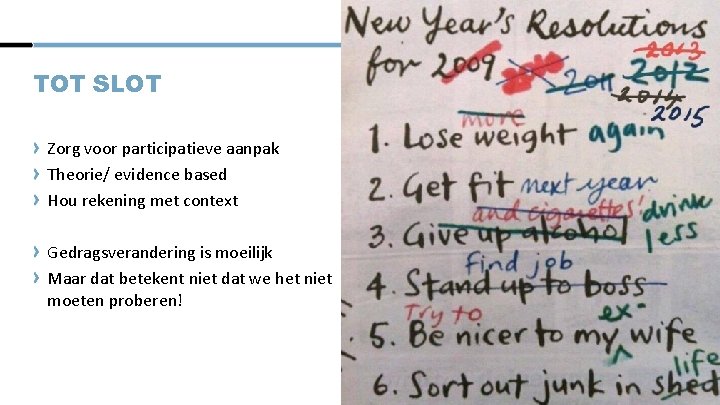 TOT SLOT
› Zorg voor participatieve aanpak
› Theorie/ evidence based
› Hou rekening met context
› Gedragsverandering is moeilijk
› Maar dat betekent niet dat we het niet
moeten proberen!
New Year's Resolutions
for 2009 2011 2012 2013
2014
2015
more
1. Lose weight again
2. Get fit next year
and cigarettes!
3. Give up alcohol drink
less
find job
4. Stand up to boss
Try to
ex-
5. Be nicer to my wife
life
6. Sort out junk in shed